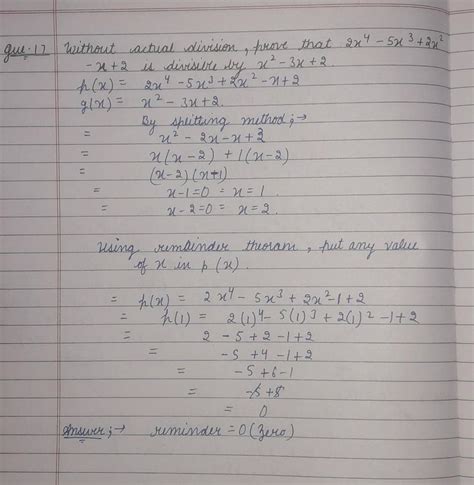 Que·17 Without actual division, prove that 2x⁴ - 5x³ + 2x²
- x + 2 is divisible by x² - 3x + 2
p(x) = 2x⁴ - 5x³ + 2x² - x + 2
g(x) = x² - 3x + 2.
By splitting method ;→
= x² - 2x - x + 2
= x(x-2) + 1(x-2)
= (x-2) (x+1)
= x-1=0 = x = 1.
= x-2=0 = x = 2.
Using remainder theoram, put any value
of x in p(x).
= p(x) = 2x⁴ - 5x³ + 2x² - 1 + 2
= p(1) = 2(1)⁴ - 5(1)³ + 2(1)² - 1 + 2
= 2 - 5 + 2 - 1 + 2
= -5 + 4 - 1 + 2
= -5 + 6 - 1
= + 8
= 0
Answer ;→ reminder = 0 (Zero)